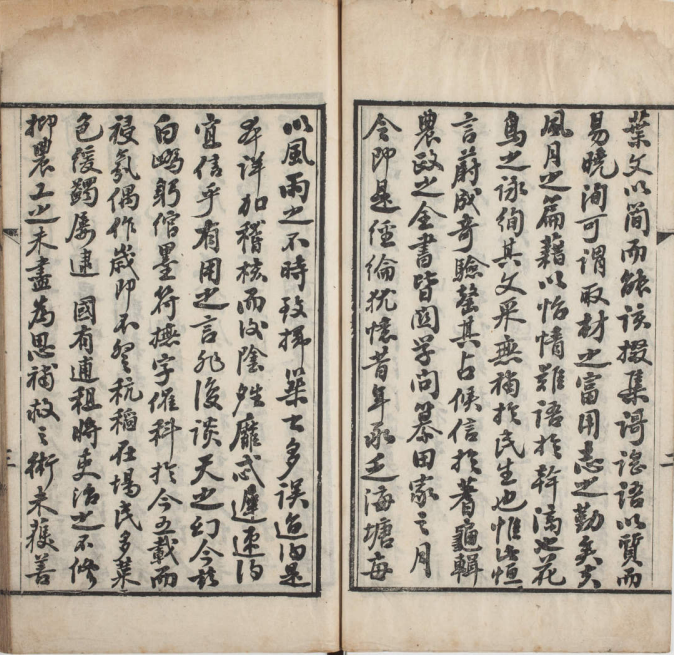 葉文以簡而能該掇集謌謠語以質而
易曉洵可謂取材之富用志之勤矣夫
風月之篇藉以怡情難語於幹濟也花
鳥之詠徇其文采無補於民生也惟此恒
言蔚成奇驗罄其占候信於蓍龜輯
農政之全書皆圖學問纂田家之月
令即是經綸犹憶昔年承乏海塘每
二
以風雨之不時致築之多誤迨得是
本詳加稽核而後陰晴靡忒遲速得
宜信乎有用之言非侈談天之幻今茲
白躬墨符撫字催科於今五載而
祲氛偶作歲即不登秔稻在場民多菜
色緩蠲屢逮國有逋租時吏治之不修
抑農工之未盡為思補救之術未獲善
三